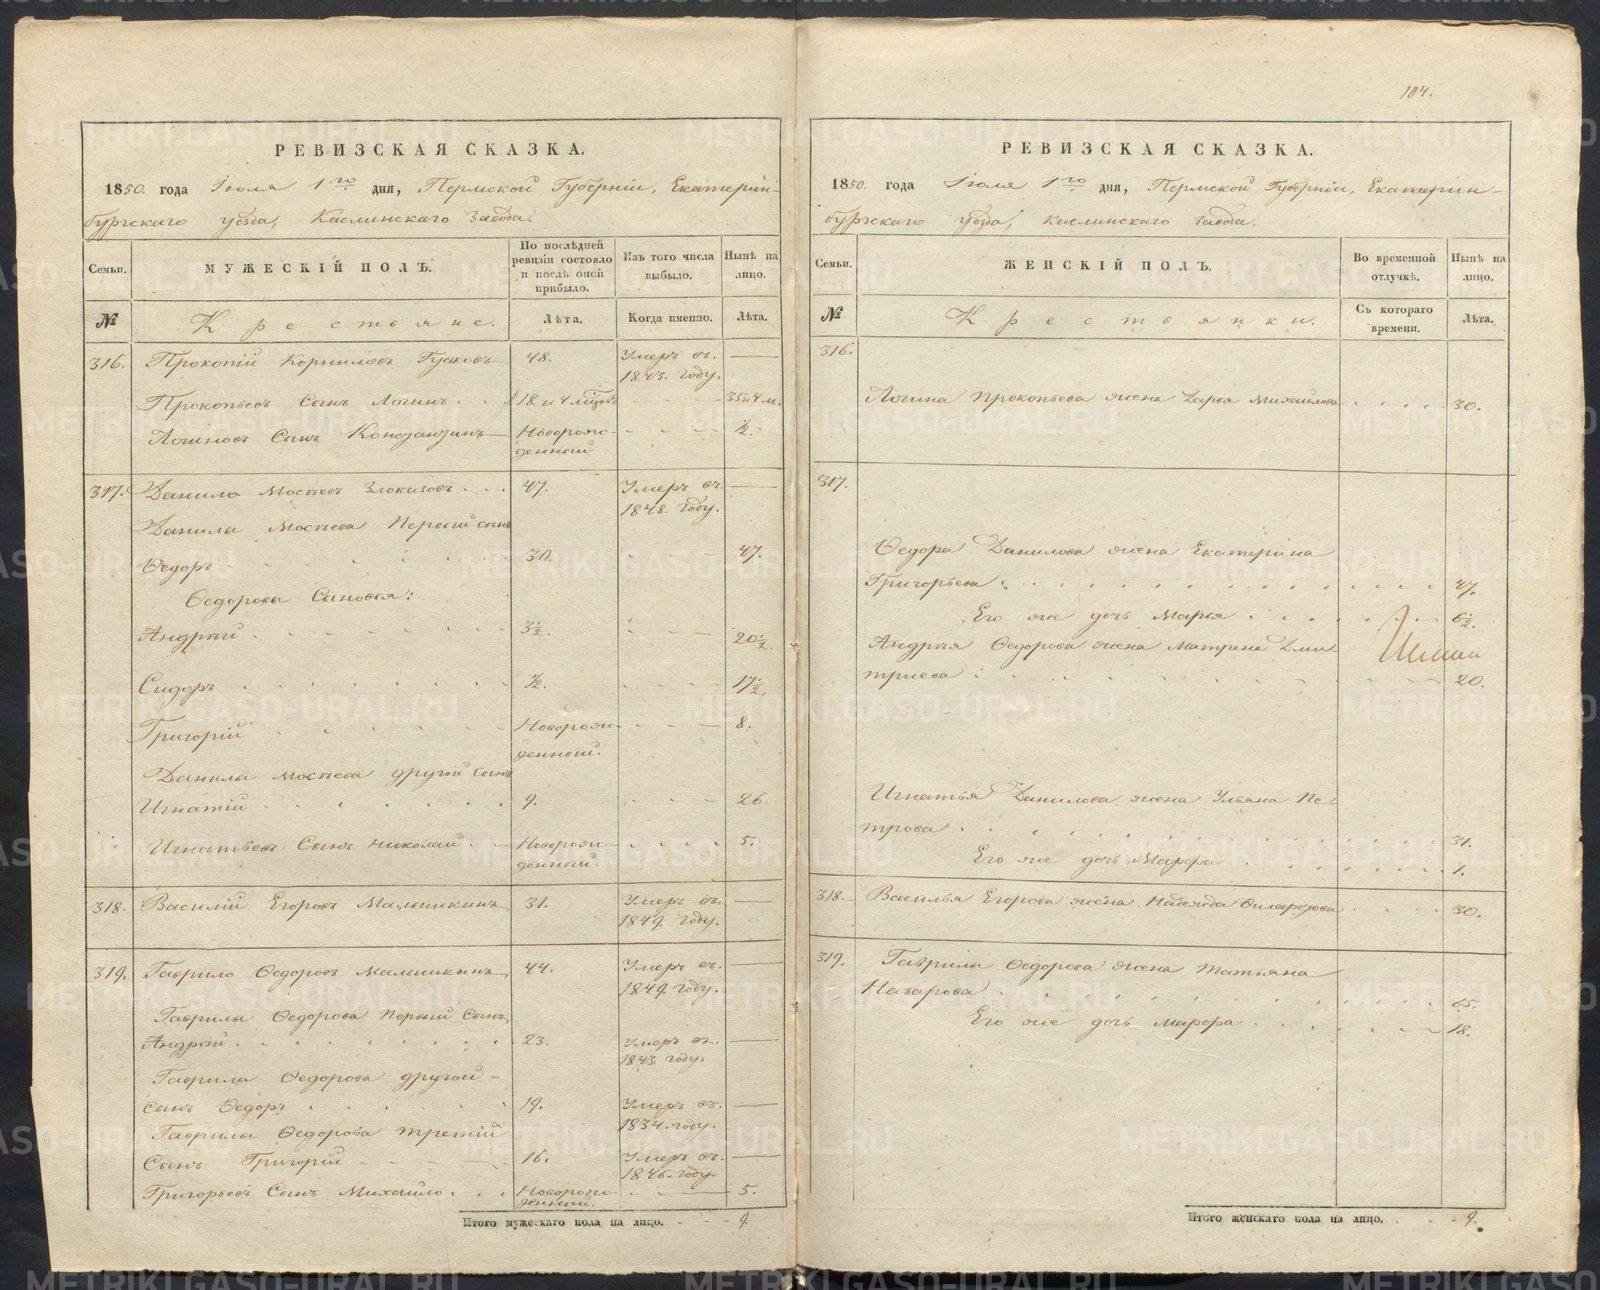 104.
РЕВИЗСКАЯ СКАЗКА.
1850. года Іюля 1го дня, Пермской Губерніи, Екатерин-
бургскаго уѣзда, Каслинскаго Завода.
Семьи.
МУЖЕСКІЙ ПОЛЪ.
По послѣдней
ревизіи состояло
и послѣ оной
прибыло.
Изъ того числа
выбыло.
Нынѣ на
лицо.
№
Крестьяне.
Лѣта.
Когда именно.
Лѣта.
316. Прокопій Корниловъ Гусковъ 48. Умеръ въ
1843. году.
Прокопьевъ Сынъ Логинъ 18. и 4 35 и 4 м.
Логиновъ Сынъ Констандинъ Новорож- ½.
денный.
317. Данило Мосѣевъ Злоказовъ 47. Умеръ въ
1848. году.
Данилы Мосѣева Первый сынъ
Ѳедоръ 30. 47.
Ѳедоровы Сыновья:
Андрей 3½. 20½.
Сидоръ ½. 17½.
Григорій Новорож- 8.
денный.
Данилы Мосѣева другой сынъ
Игнатій 9. 26.
Игнатьевъ Сынъ Николай Новорож- 5.
денный.
318. Василій Егоровъ Малышкинъ 31. Умеръ въ
1849. году.
319. Гаврило Ѳедоровъ Малышкинъ 44. Умеръ въ
1849. году.
Гаврилы Ѳедорова Первый Сынъ
Андрей 23. Умеръ въ
1843. году.
Гаврилы Ѳедорова другой
сынъ Ѳедоръ 19. Умеръ въ
1834. году.
Гаврилы Ѳедорова третій
Сынъ Григорій 16. Умеръ въ
1846. году.
Григорьевъ Сынъ Михайло Новорож- 5.
денный.
Итого мужескаго пола на лицо. 9.
РЕВИЗСКАЯ СКАЗКА.
1850. года Іюля 1го дня, Пермской Губерніи, Екатерин-
бургскаго уѣзда, Каслинскаго Завода.
Семьи.
ЖЕНСКІЙ ПОЛЪ.
Во временной
отлучкѣ.
Нынѣ на
лицо.
№
Крестьянки.
Съ котораго
времени.
Лѣта.
316.
Логина Прокопьева жена Дарья Михайлова 30.
317.
Ѳедора Данилова жена Екатерина
Григорьева 47.
Его же дочь Марья 6½.
Андрея Ѳедорова жена Матрена Дми-
триева 20.
Игнатья Данилова жена Ульяна Пе-
трова 31.
Его же дочь Марфа 1.
318. Василья Егорова жена Надежда Филаретова 30.
319. Гаврилы Ѳедорова жена Татьяна
Назарова 65.
Его же дочь Марфа 18.
Итого женскаго пола на лицо. 9.
METRIKI.GASO-URAL.RU